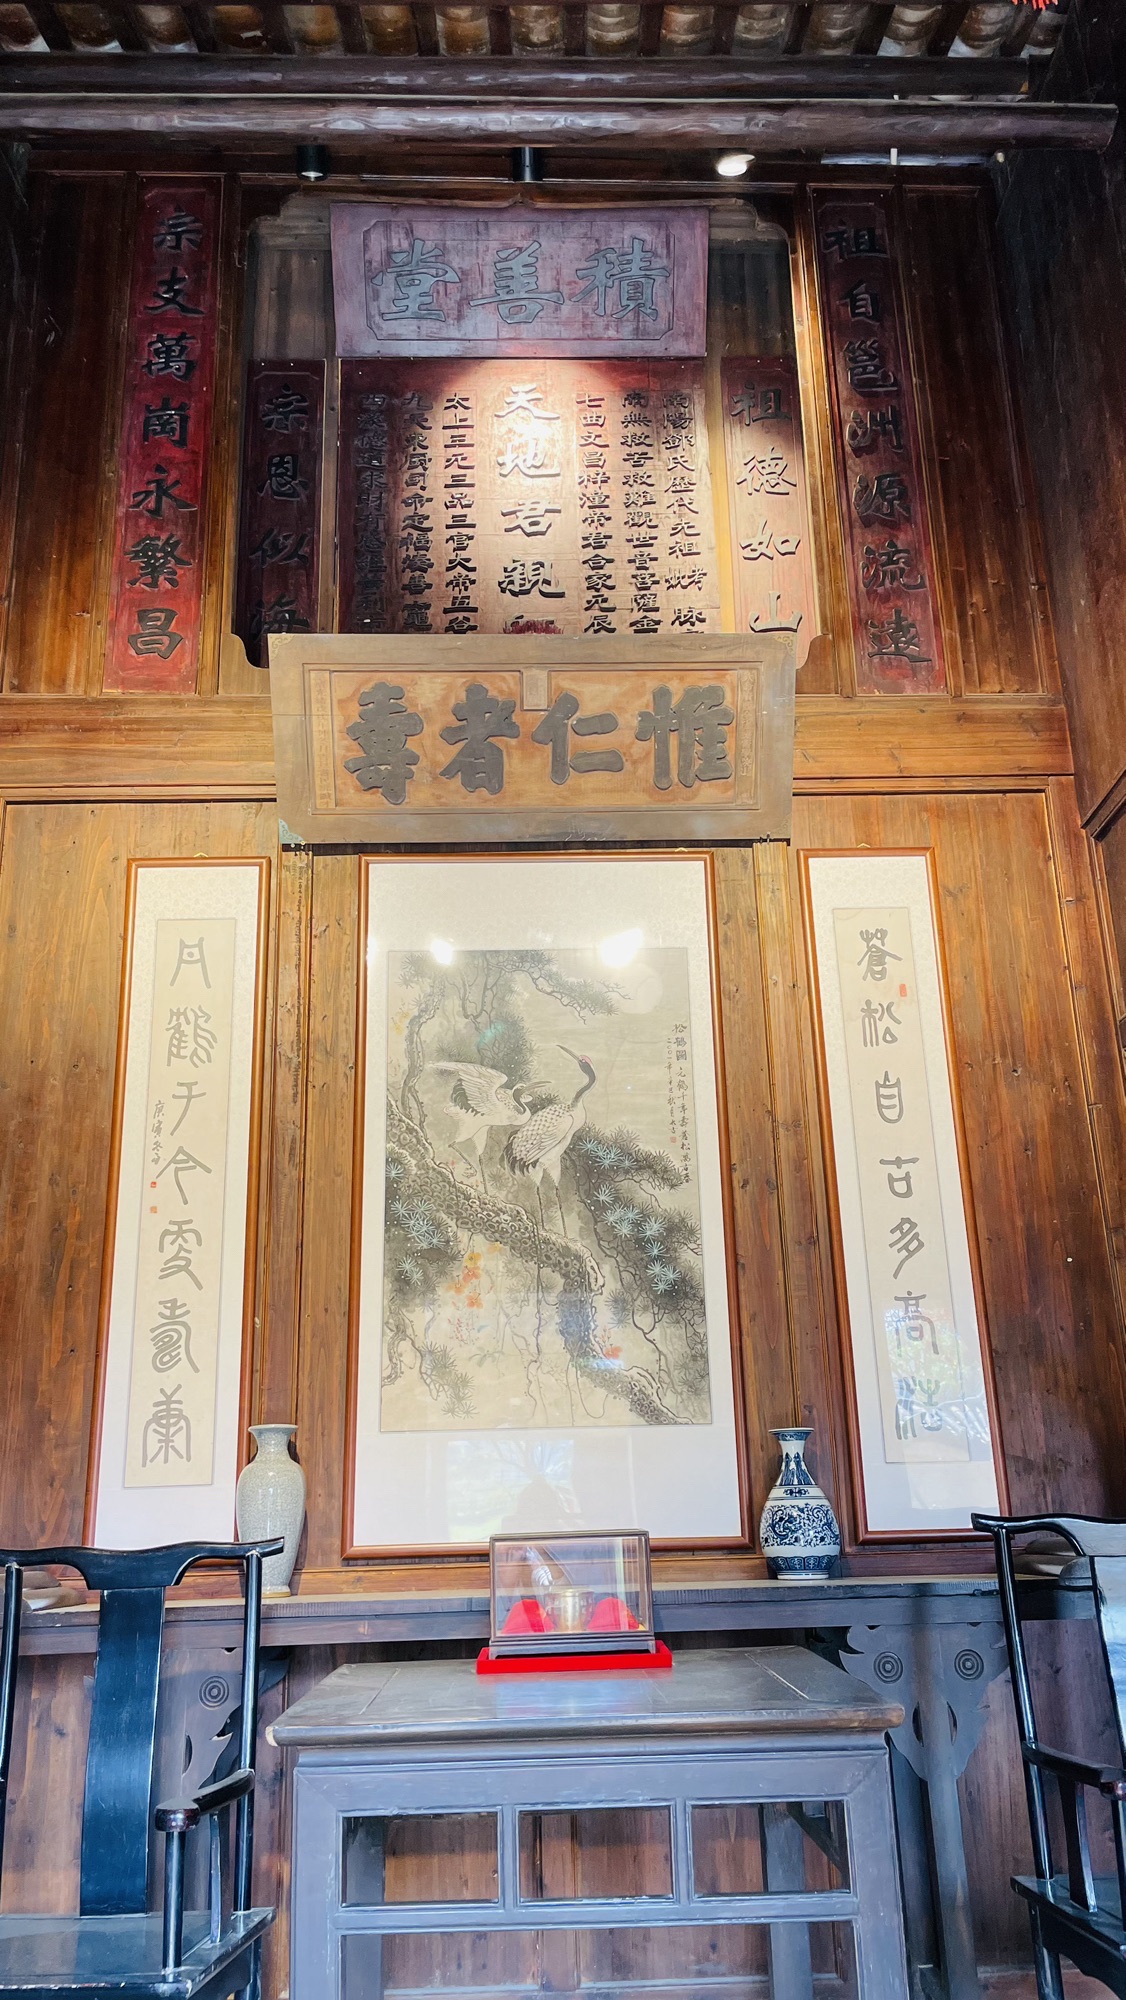 積善堂
祖自邕洲源流遠
宗支萬崗永繁昌
祖德如山
宗恩似海
南陽鄧氏歷代先祖
南無救苦救難觀世音菩薩金
七曲文昌梓潼帝君合家元辰
天地君親
太上三元三品三官大帝五谷
九天東廚司命定福
惟仁者壽
蒼松自古多高潔
丹鶴于今更壽康
松鶴圖